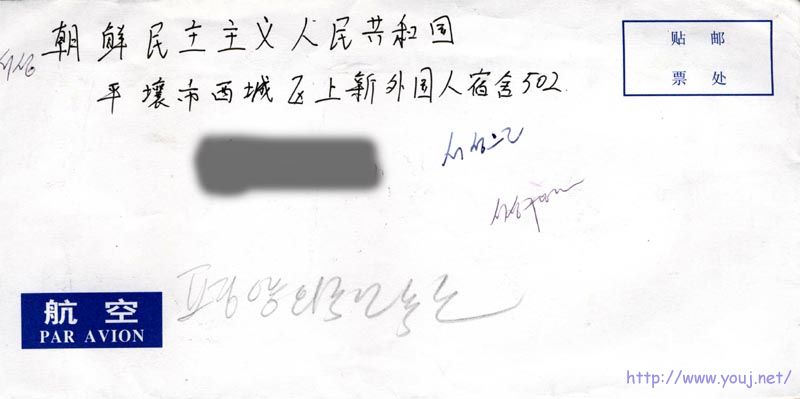 朝鲜民主主义人民共和国
平壤市西城区上新外国人宿舍502
贴邮
票处
서성
서성
航空
PAR AVION
평양외국인
http://www.youj.net/